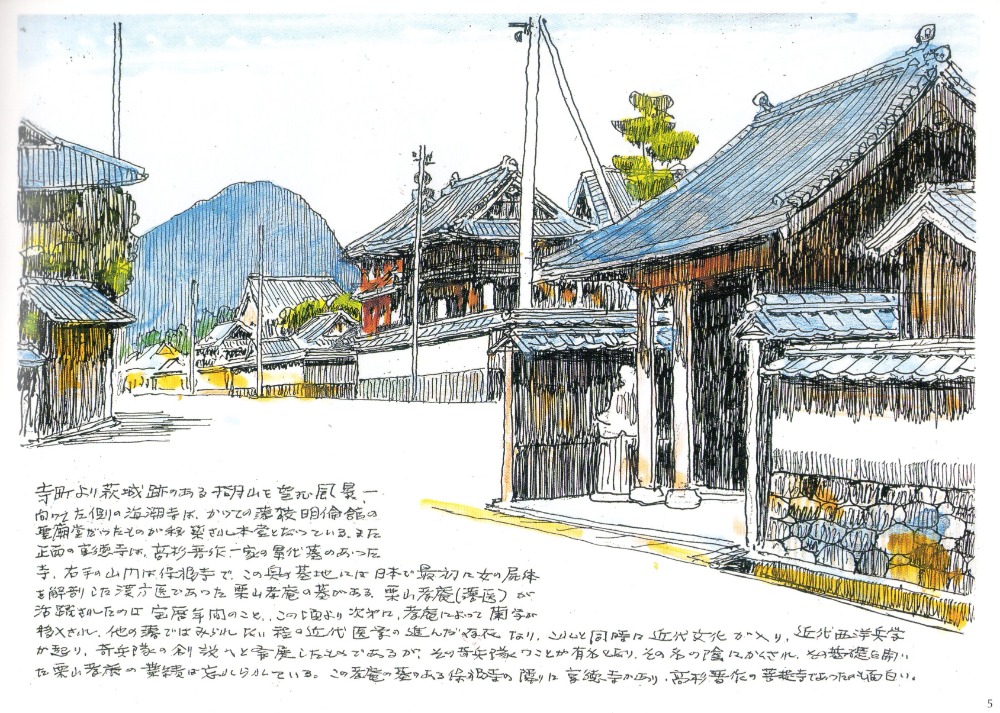 寺町より萩城跡のある指月山を望む風景、
向って左側の海潮寺は、かつての藩校明倫館の
聖廟堂だったものが移築され本堂となっている。また
正面の享徳寺は、高杉晋作一家の累代墓のあった
寺、右手の山門は保福寺で、この奥の墓地には日本で最初に女の屍体
を解剖した漢方医であった栗山孝庵の墓がある。栗山孝庵(藩医)が
活躍されたのは宝暦年間のこと、この頃より次第に、孝庵によって蘭学が
移入され、他の藩ではみられない程の近代医学の進んだ存在となり、これと同時に近代文化が入り、近代西洋兵学
が起り、奇兵隊の創設へと発展したものであるが、その奇兵隊のことが有名となり、その名の陰にかくされ、その基礎を開い
た栗山孝庵の業績は忘れられている。この孝庵の墓のある保福寺の隣りに享徳寺があり、高杉晋作の菩提寺であったのも面白い。
5